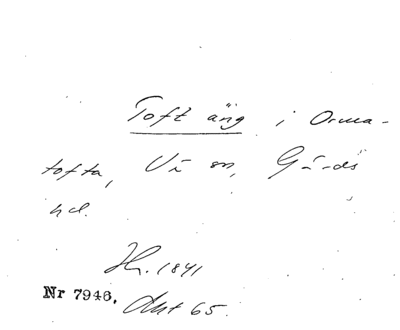 Toft äng i Orma-
tofta, Vä sn, Gärds
hd.
Hr. 1841
Nr 7946. Akt 65.